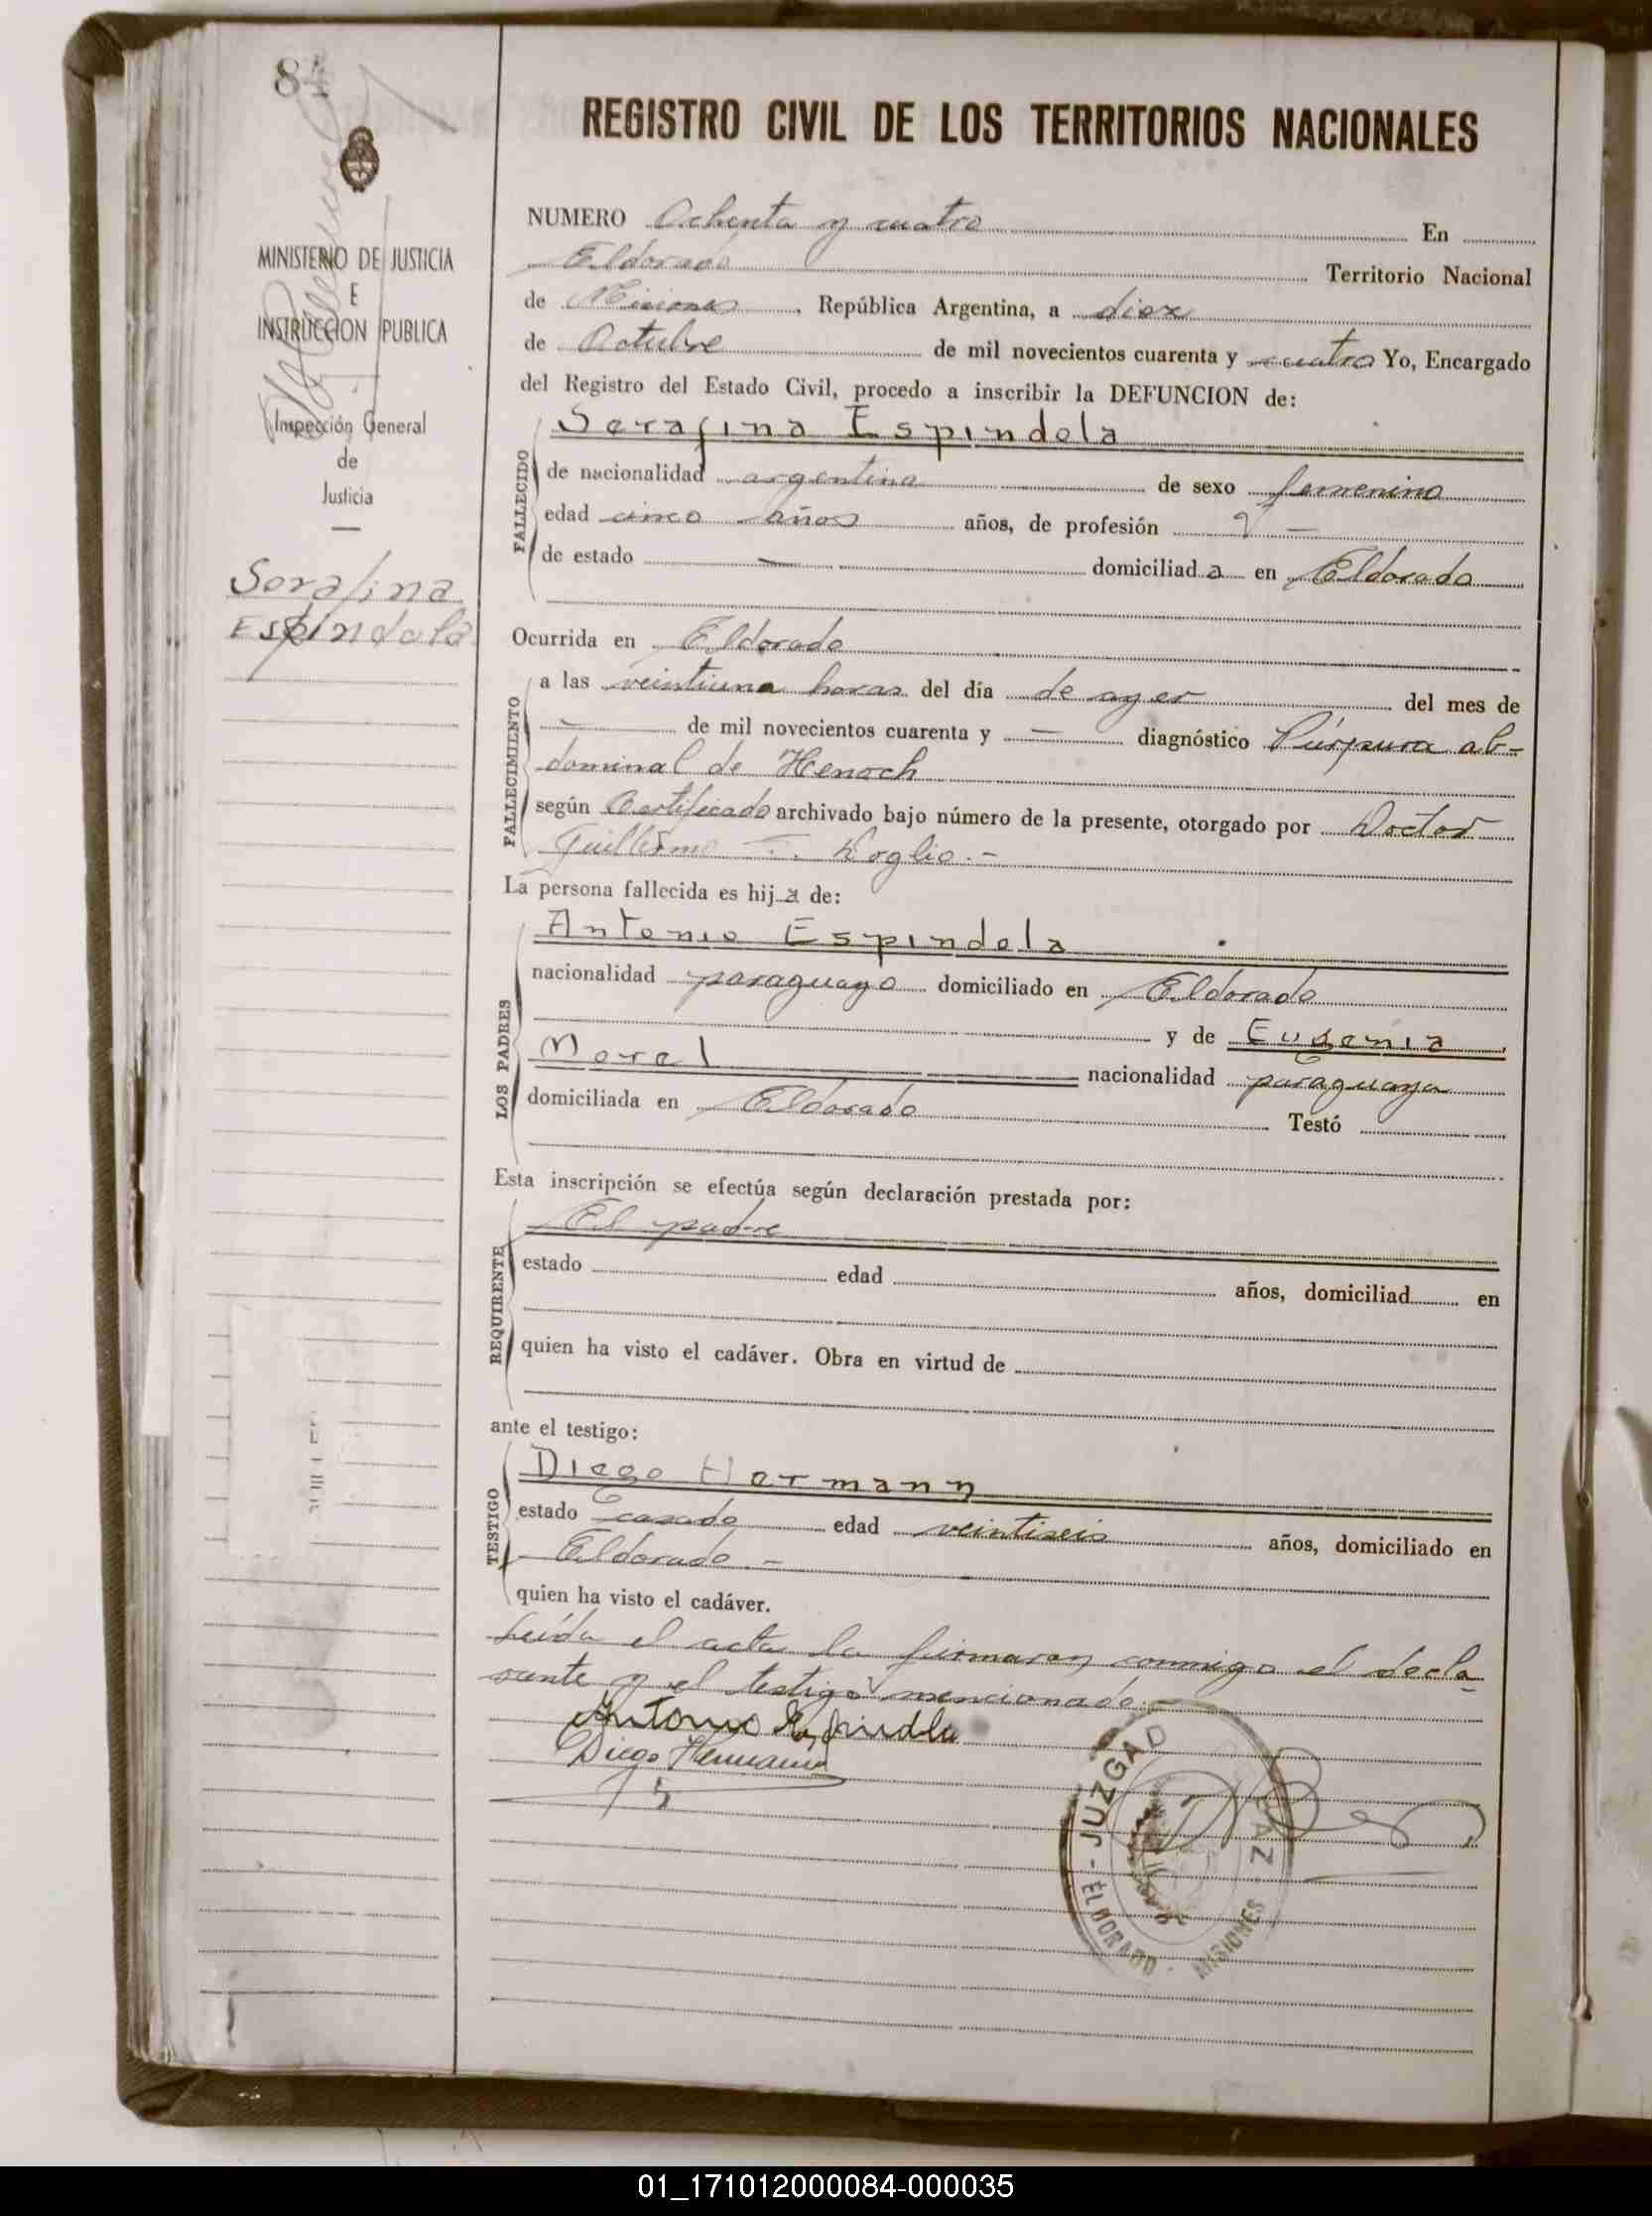 84
REGISTRO CIVIL DE LOS TERRITORIOS NACIONALES
MINISTERIO DE JUSTICIA
E
INSTRUCCION PUBLICA
Inspección General
de
Justicia
Serafina
Espíndola
NUMERO Ochenta y cuatro En
Eldorado Territorio Nacional
de Misiones, República Argentina, a diez
de Octubre de mil novecientos cuarenta y cuatro Yo, Encargado
del Registro del Estado Civil, procedo a inscribir la DEFUNCION de:
FALLECIDO
Serafina Espindola
de nacionalidad argentina de sexo femenino
edad cinco años años, de profesión —
de estado — domiciliada en Eldorado
Ocurrida en Eldorado
FALLECIMIENTO
a las veintiuna horas del día de ayer del mes de
— de mil novecientos cuarenta y — diagnóstico Púrpura ab-
dominal de Henoch
según Certificado archivado bajo número de la presente, otorgado por Doctor
Guillermo
La persona fallecida es hija de:
LOS PADRES
Antonio Espindola
nacionalidad paraguayo domiciliado en Eldorado
y de Eugenia
Morel nacionalidad paraguaya
domiciliada en Eldorado Testó
Esta inscripción se efectúa según declaración prestada por:
REQUIRENTE
El padre
estado edad años, domiciliad en
quien ha visto el cadáver. Obra en virtud de
ante el testigo:
TESTIGO
Diego Hermann
estado casado edad veintiseis años, domiciliado en
Eldorado -
quien ha visto el cadáver.
Leída el acta la firmaron conmigo el decla-
rante y el testigo mencionado.-
Antonio Espindla
Diego Hermann
JUZGADO PAZ - ELDORADO - MISIONES
01_171012000084-000035